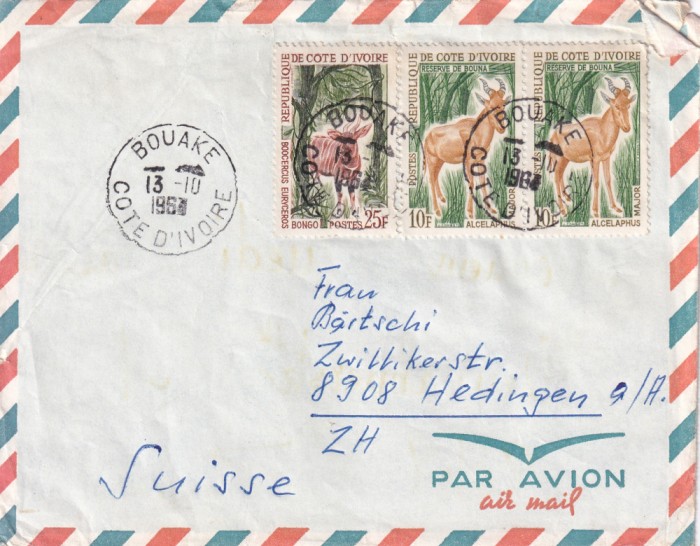 REPUBLIQUE DE COTE D'IVOIRE
BOOCERCUS EURYCEROS
BONGO POSTES 25F
REPUBLIQUE DE COTE D'IVOIRE
RESERVE DE BOUNA
POSTES
10F ALCELAPHUS MAJOR
REPUBLIQUE DE COTE D'IVOIRE
RESERVE DE BOUNA
POSTES
10F ALCELAPHUS MAJOR
BOUAKE
13 -10
COTE D'IVOIRE
BOUAKE
13
COTE
BOUAKE
13 -10
COTE D'IVOIRE
Frau
Bärtschi
Zwillikerstr.
8908 Hedingen a/A.
ZH
Suisse
PAR AVION
air mail